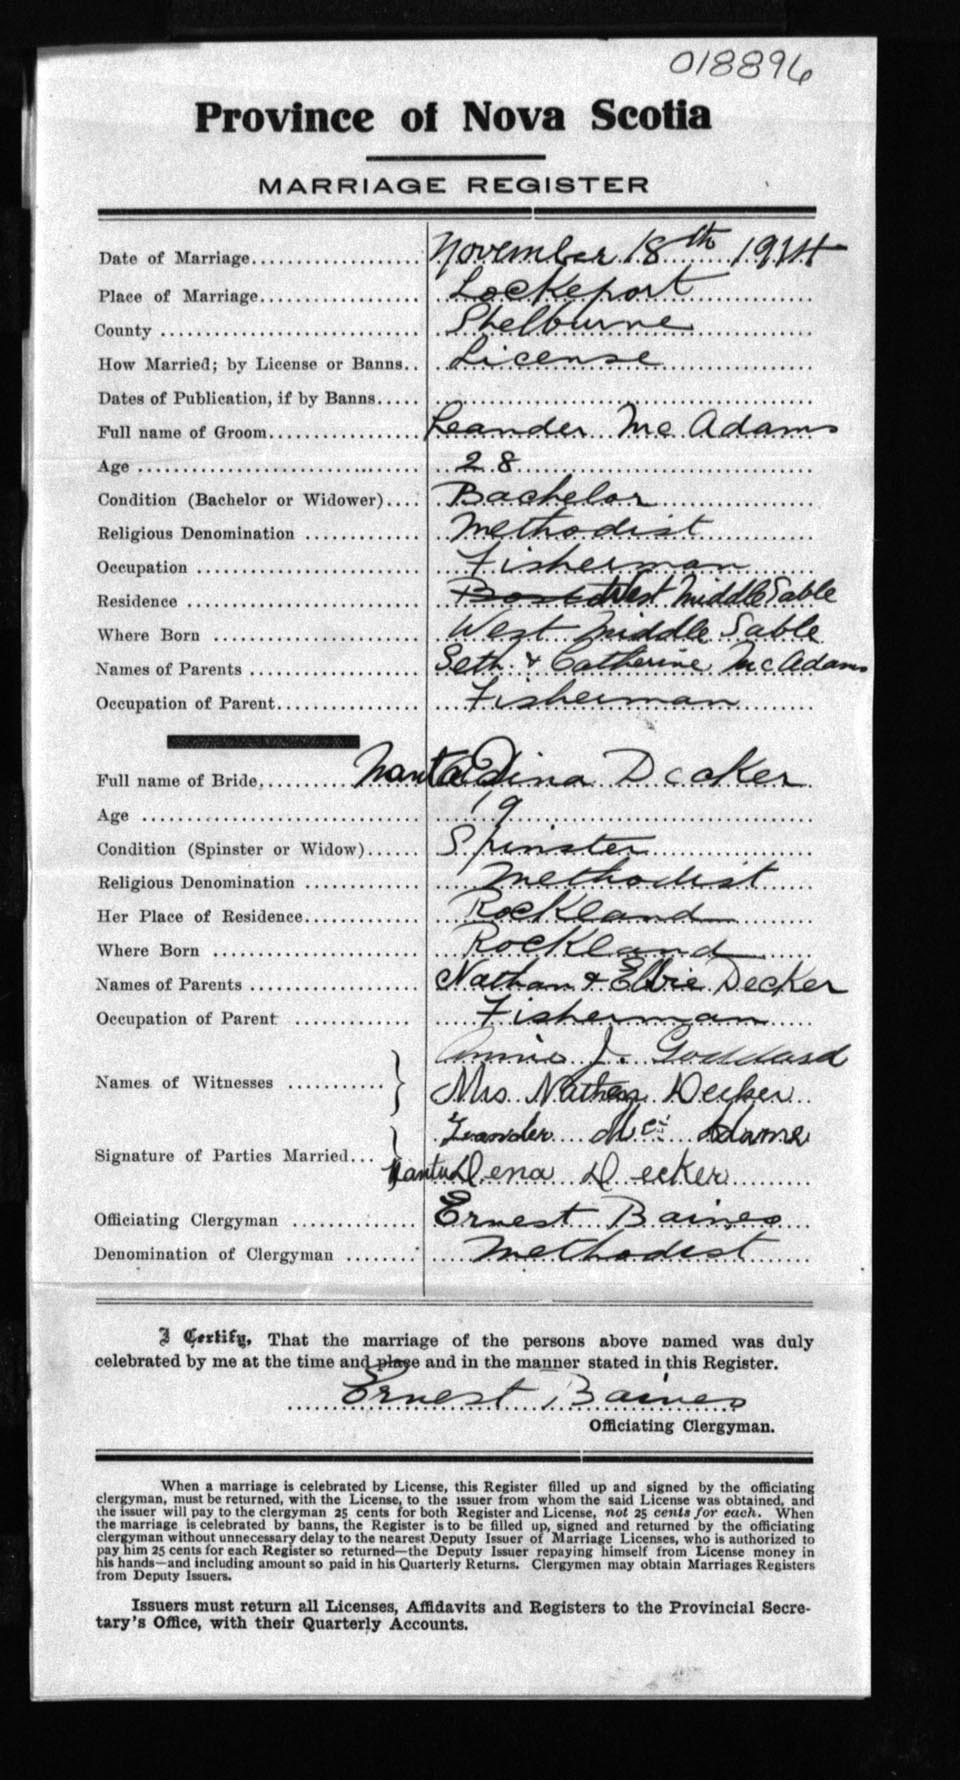 018896
Province of Nova Scotia
MARRIAGE REGISTER
Date of Marriage.................... November 18th 1914
Place of Marriage.................. Lockeport
County ............................. Shelburne
How Married; by License or Banns.. License
Dates of Publication, if by Banns.....
Full name of Groom................. Leander Mc Adams
Age ............................... 28
Condition (Bachelor or Widower).... Bachelor
Religious Denomination ............. Methodist
Occupation ......................... Fisherman
Residence .......................... West Middle Sable
Where Born ........................ West Middle Sable
Names of Parents ................... Seth & Catherine McAdams
Occupation of Parent................ Fisherman
Full name of Bride, Dina Decker
Age ............................... 19
Condition (Spinster or Widow)...... Spinster
Religious Denomination ............. Methodist
Her Place of Residence............. Rockland
Where Born ........................ Rockland
Names of Parents ................... Nathan & Decker
Occupation of Parent ............. Fisherman
Annie J. Goddard
Names of Witnesses ...........} Mrs Nathan Decker
Leander Mc Adams
Signature of Parties Married...} Dena Decker
Officiating Clergyman .............. Ernest Baines
Denomination of Clergyman ........ Methodist
I Certify, That the marriage of the persons above named was duly
celebrated by me at the time and place and in the manner stated in this Register.
Ernest Baines
Officiating Clergyman.
When a marriage is celebrated by License, this Register filled up and signed by the officiating
clergyman, must be returned, with the License, to the issuer from whom the said License was obtained, and
the issuer will pay to the clergyman 25 cents for both Register and License, not 25 cents for each. When
the marriage is celebrated by banns, the Register is to be filled up, signed and returned by the officiating
clergyman without unnecessary delay to the nearest Deputy Issuer of Marriage Licenses, who is authorized to
pay him 25 cents for each Register so returned—the Deputy Issuer repaying himself from License money in
his hands—and including amount so paid in his Quarterly Returns. Clergymen may obtain Marriages Registers
from Deputy Issuers.
Issuers must return all Licenses, Affidavits and Registers to the Provincial Secre-
tary's Office, with their Quarterly Accounts.